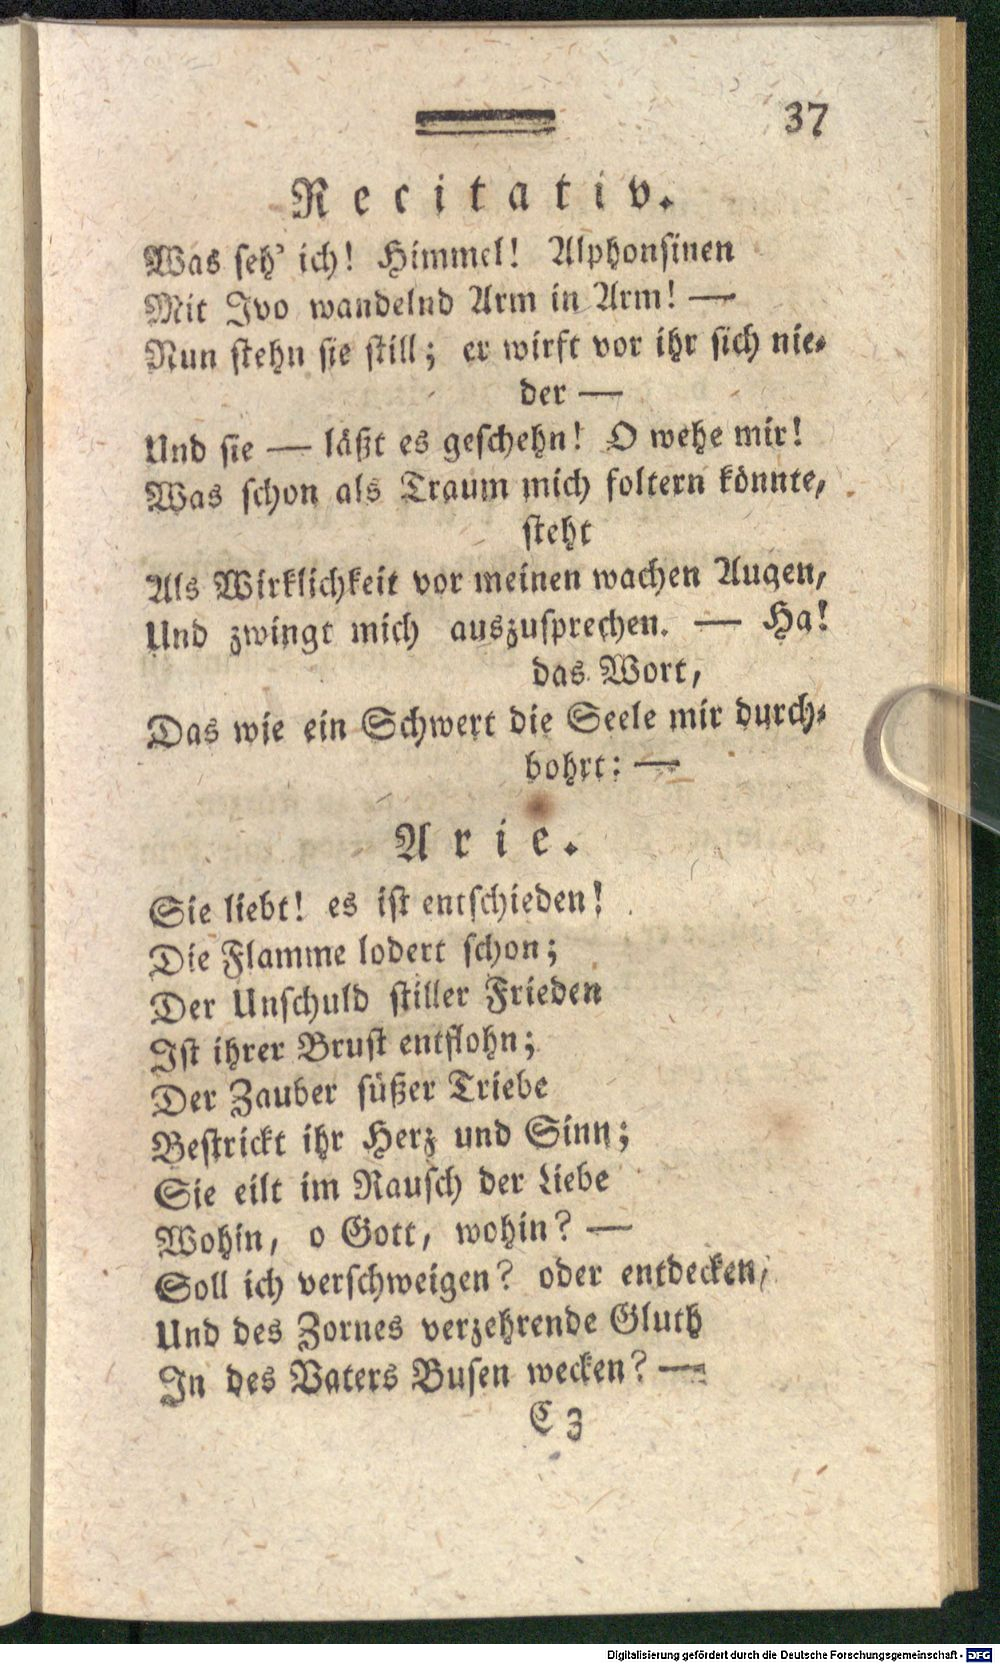 37
Recitativ.
Was seh' ich! Himmel! Alphonsinen
Mit Ivo wandelnd Arm in Arm! —
Nun stehn sie still; er wirft vor ihr sich nie-
der —
Und sie — läßt es geschehn! O wehe mir!
Was schon als Traum mich foltern könnte,
steht
Als Wirklichkeit vor meinen wachen Augen,
Und zwingt mich auszusprechen. — Ha!
das Wort,
Das wie ein Schwert die Seele mir durch-
bohrt: —
Arie.
Sie liebt! es ist entschieden!
Die Flamme lodert schon;
Der Unschuld stiller Frieden
Ist ihrer Brust entflohn;
Der Zauber süßer Triebe
Bestrickt ihr Herz und Sinn;
Sie eilt im Rausch der Liebe
Wohin, o Gott, wohin? —
Soll ich verschweigen? oder entdecken,
Und des Zornes verzehrende Gluth
In des Vaters Busen wecken? —
C 3
Digitalisierung gefördert durch die Deutsche Forschungsgemeinschaft - DFG